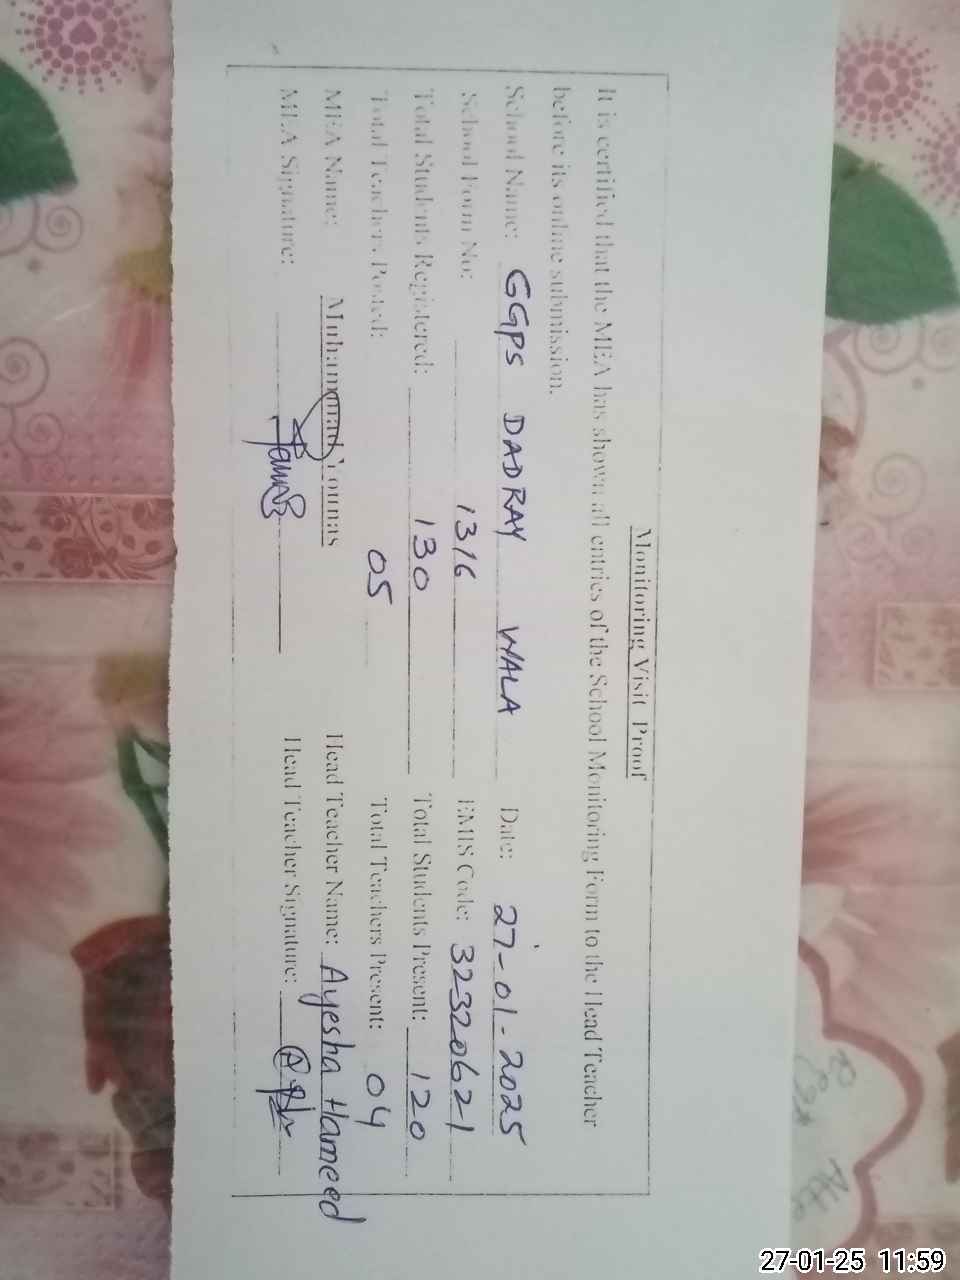 Monitoring Visit Proof
It is certified that the MEA has shown all entries of the School Monitoring Form to the Head Teacher
before its online submission.
School Name: GGPS DADRAY WALA Date: 27-01-2025
School Form No: 1316 EMIS Code: 32320621
Total Students Registered: 130 Total Students Present: 120
Total Teachers Posted: 05 Total Teachers Present: 04
MEA Name: Muhammad Younas Head Teacher Name: Ayesha Hameed
MEA Signature: Head Teacher Signature:
27-01-25 11:59